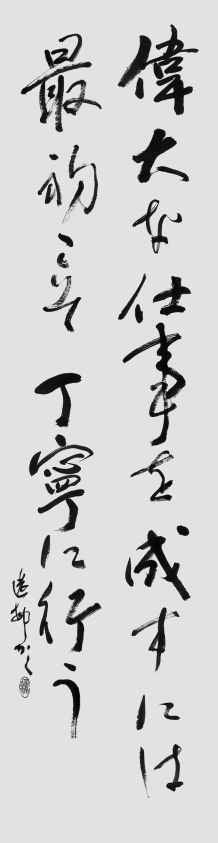 偉大な仕事を成すには
最初こそ丁寧に行う